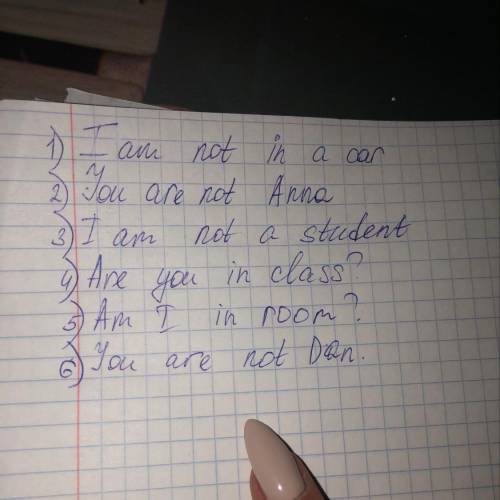 1) I am not in a car
2) You are not Anna
3) I am not a student
4) Are you in class?
5) Am I in room?
6) You are not Dan.